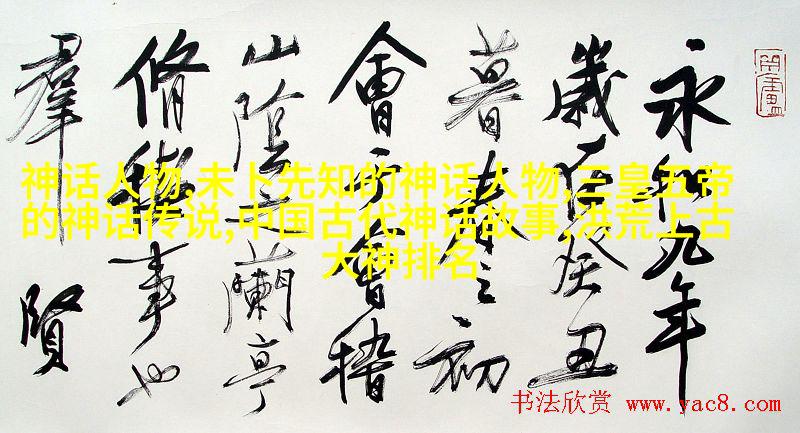 永和九年
歲在癸丑
暮春之初
會于會稽
山陰之蘭亭
脩稧事也
羣賢
神话人物,未卜先知的神话人物,三皇五帝
的神话传说,中国古代神话故事,洪荒上古
大神排名
书法欣赏 www.yac8.com